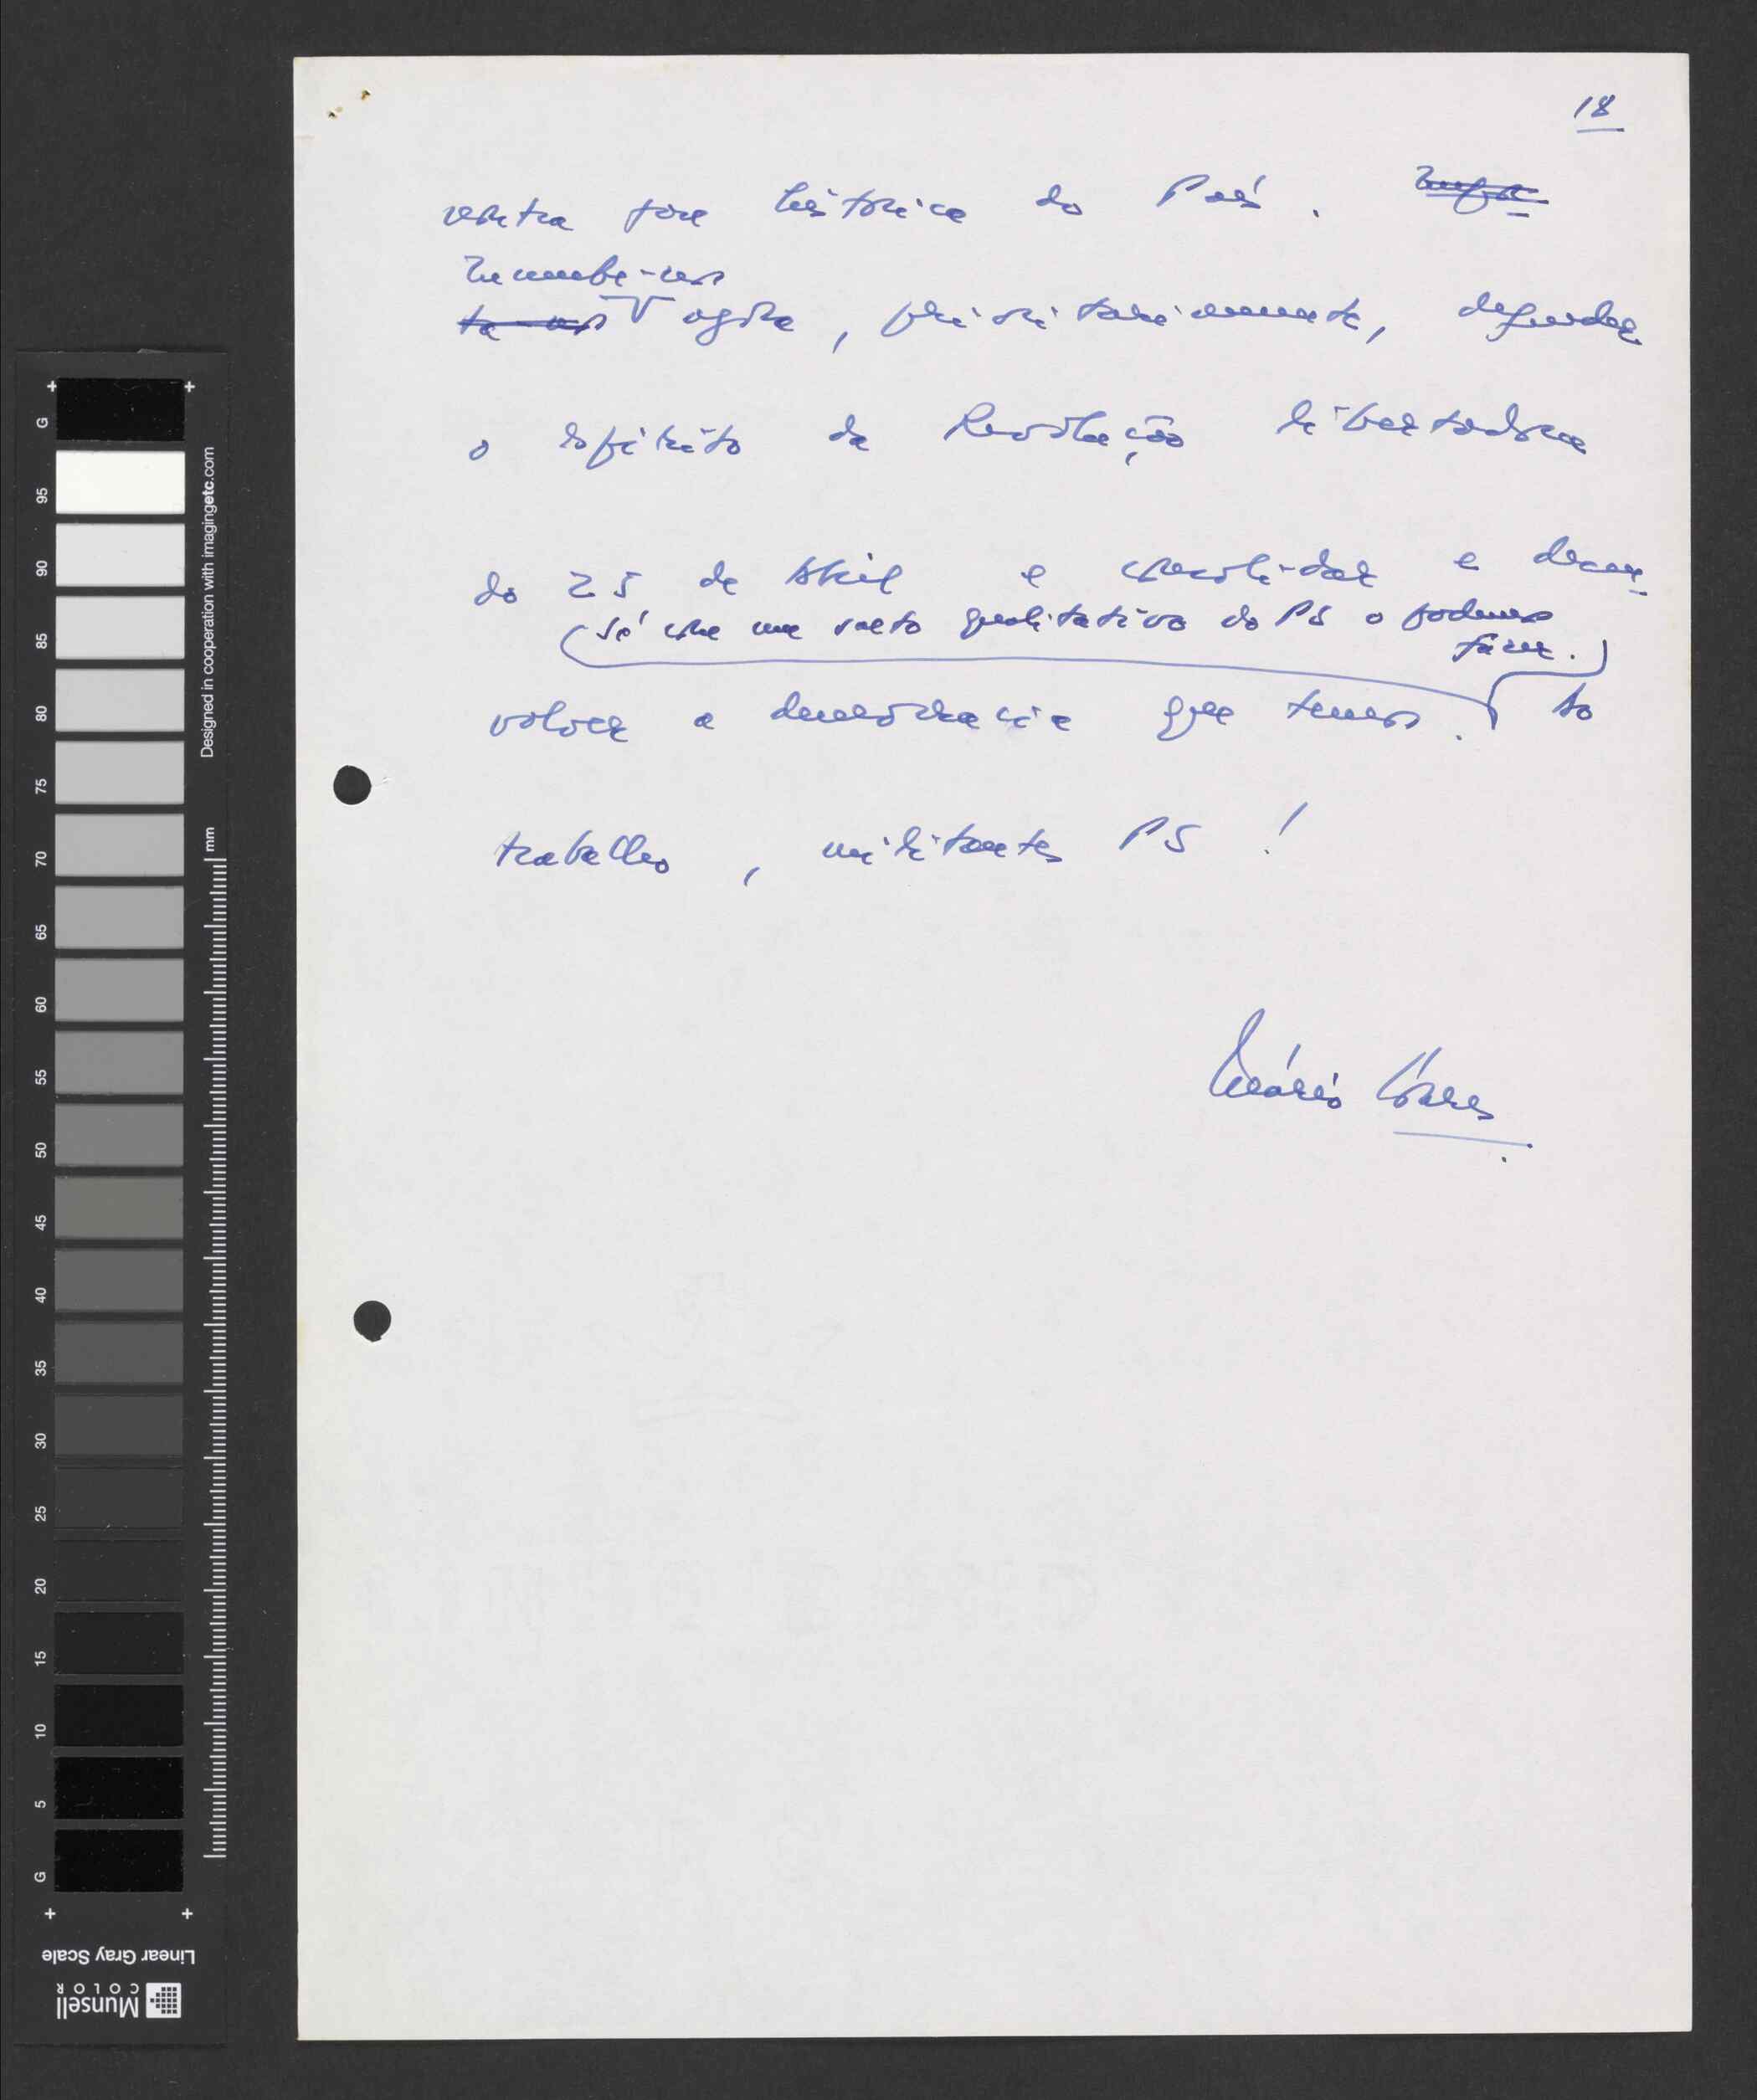 18
outra fase histórica do País. Impor-
Incumbe-nos
ta-nos agora, prioritariamente, defender
o espírito da Revolução libertadora
do 25 de Abril e consolidar e desen-
(Só com um salto qualitativo do PS o podemos
fazer.)
volver a democracia que temos. Ao
trabalho, militantes PS!
Mário Soares
G
95
90
85
80
75
70
65
60
55
50
45
40
35
30
25
20
15
10
5
G
Designed in cooperation with imagingetc.com
mm
Linear Gray Scale
Munsell
COLOR